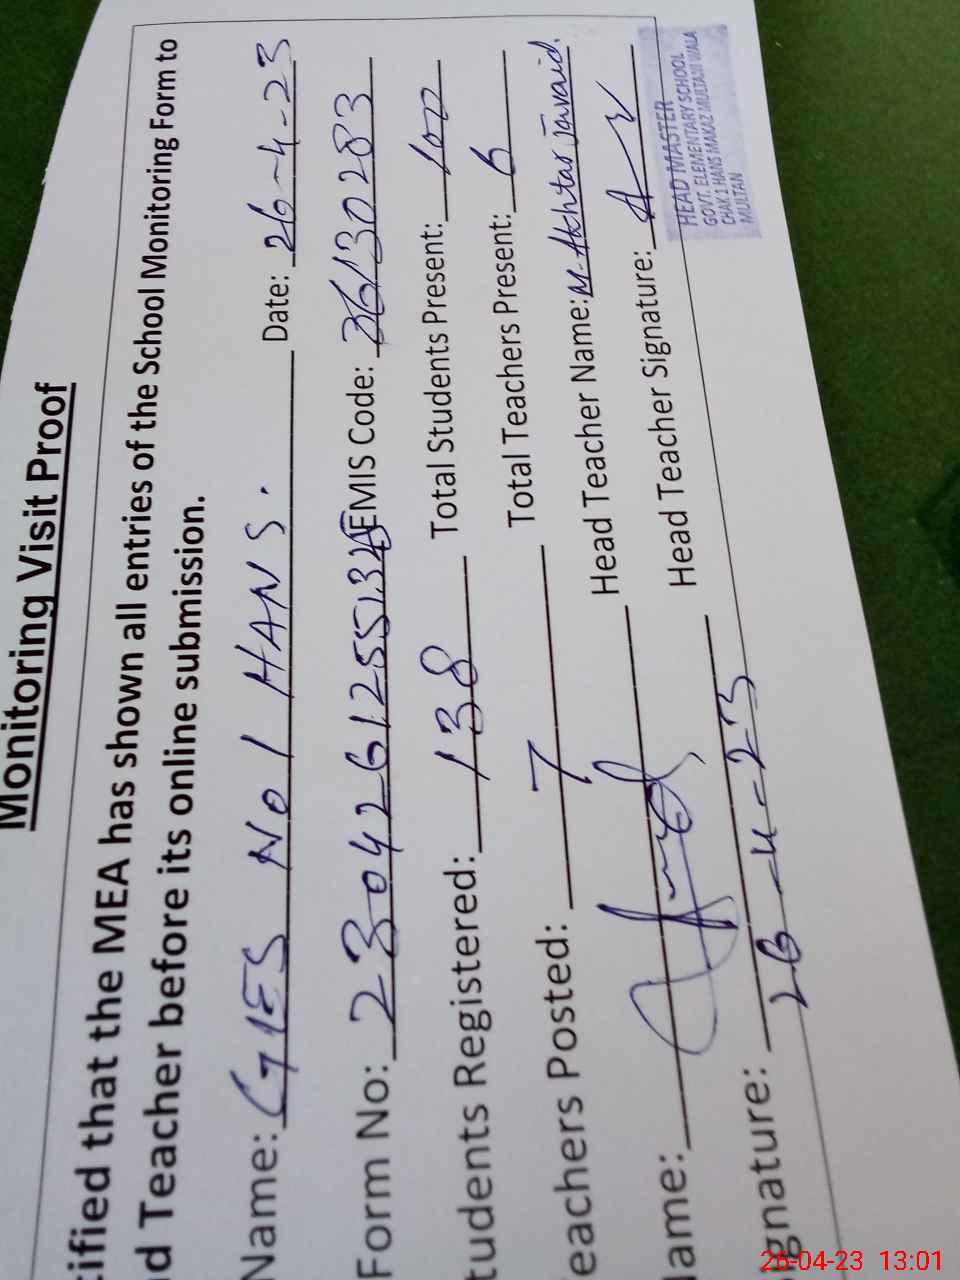 Monitoring Visit Proof
tified that the MEA has shown all entries of the School Monitoring Form to
d Teacher before its online submission.
Name: GES No 1 HANS. Date: 26-4-23
Form No: 230426125513 EMIS Code: 36130283
tudents Registered: 138 Total Students Present: 102
eachers Posted: 7 Total Teachers Present: 6
ame: Head Teacher Name: M. Akhtar Javaid.
ignature: 26-4-23 Head Teacher Signature:
HEAD MASTER
GOVT. ELEMENTARY SCHOOL
CHAK 1 HANS MAKAZ MULTANI WALA
MULTAN
26-04-23 13:01